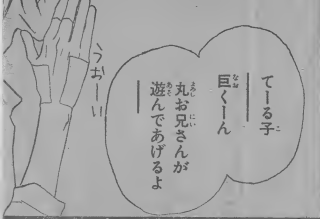 てーる子
巨くーん
丸お兄さんが
遊んであげるよ
うおーい